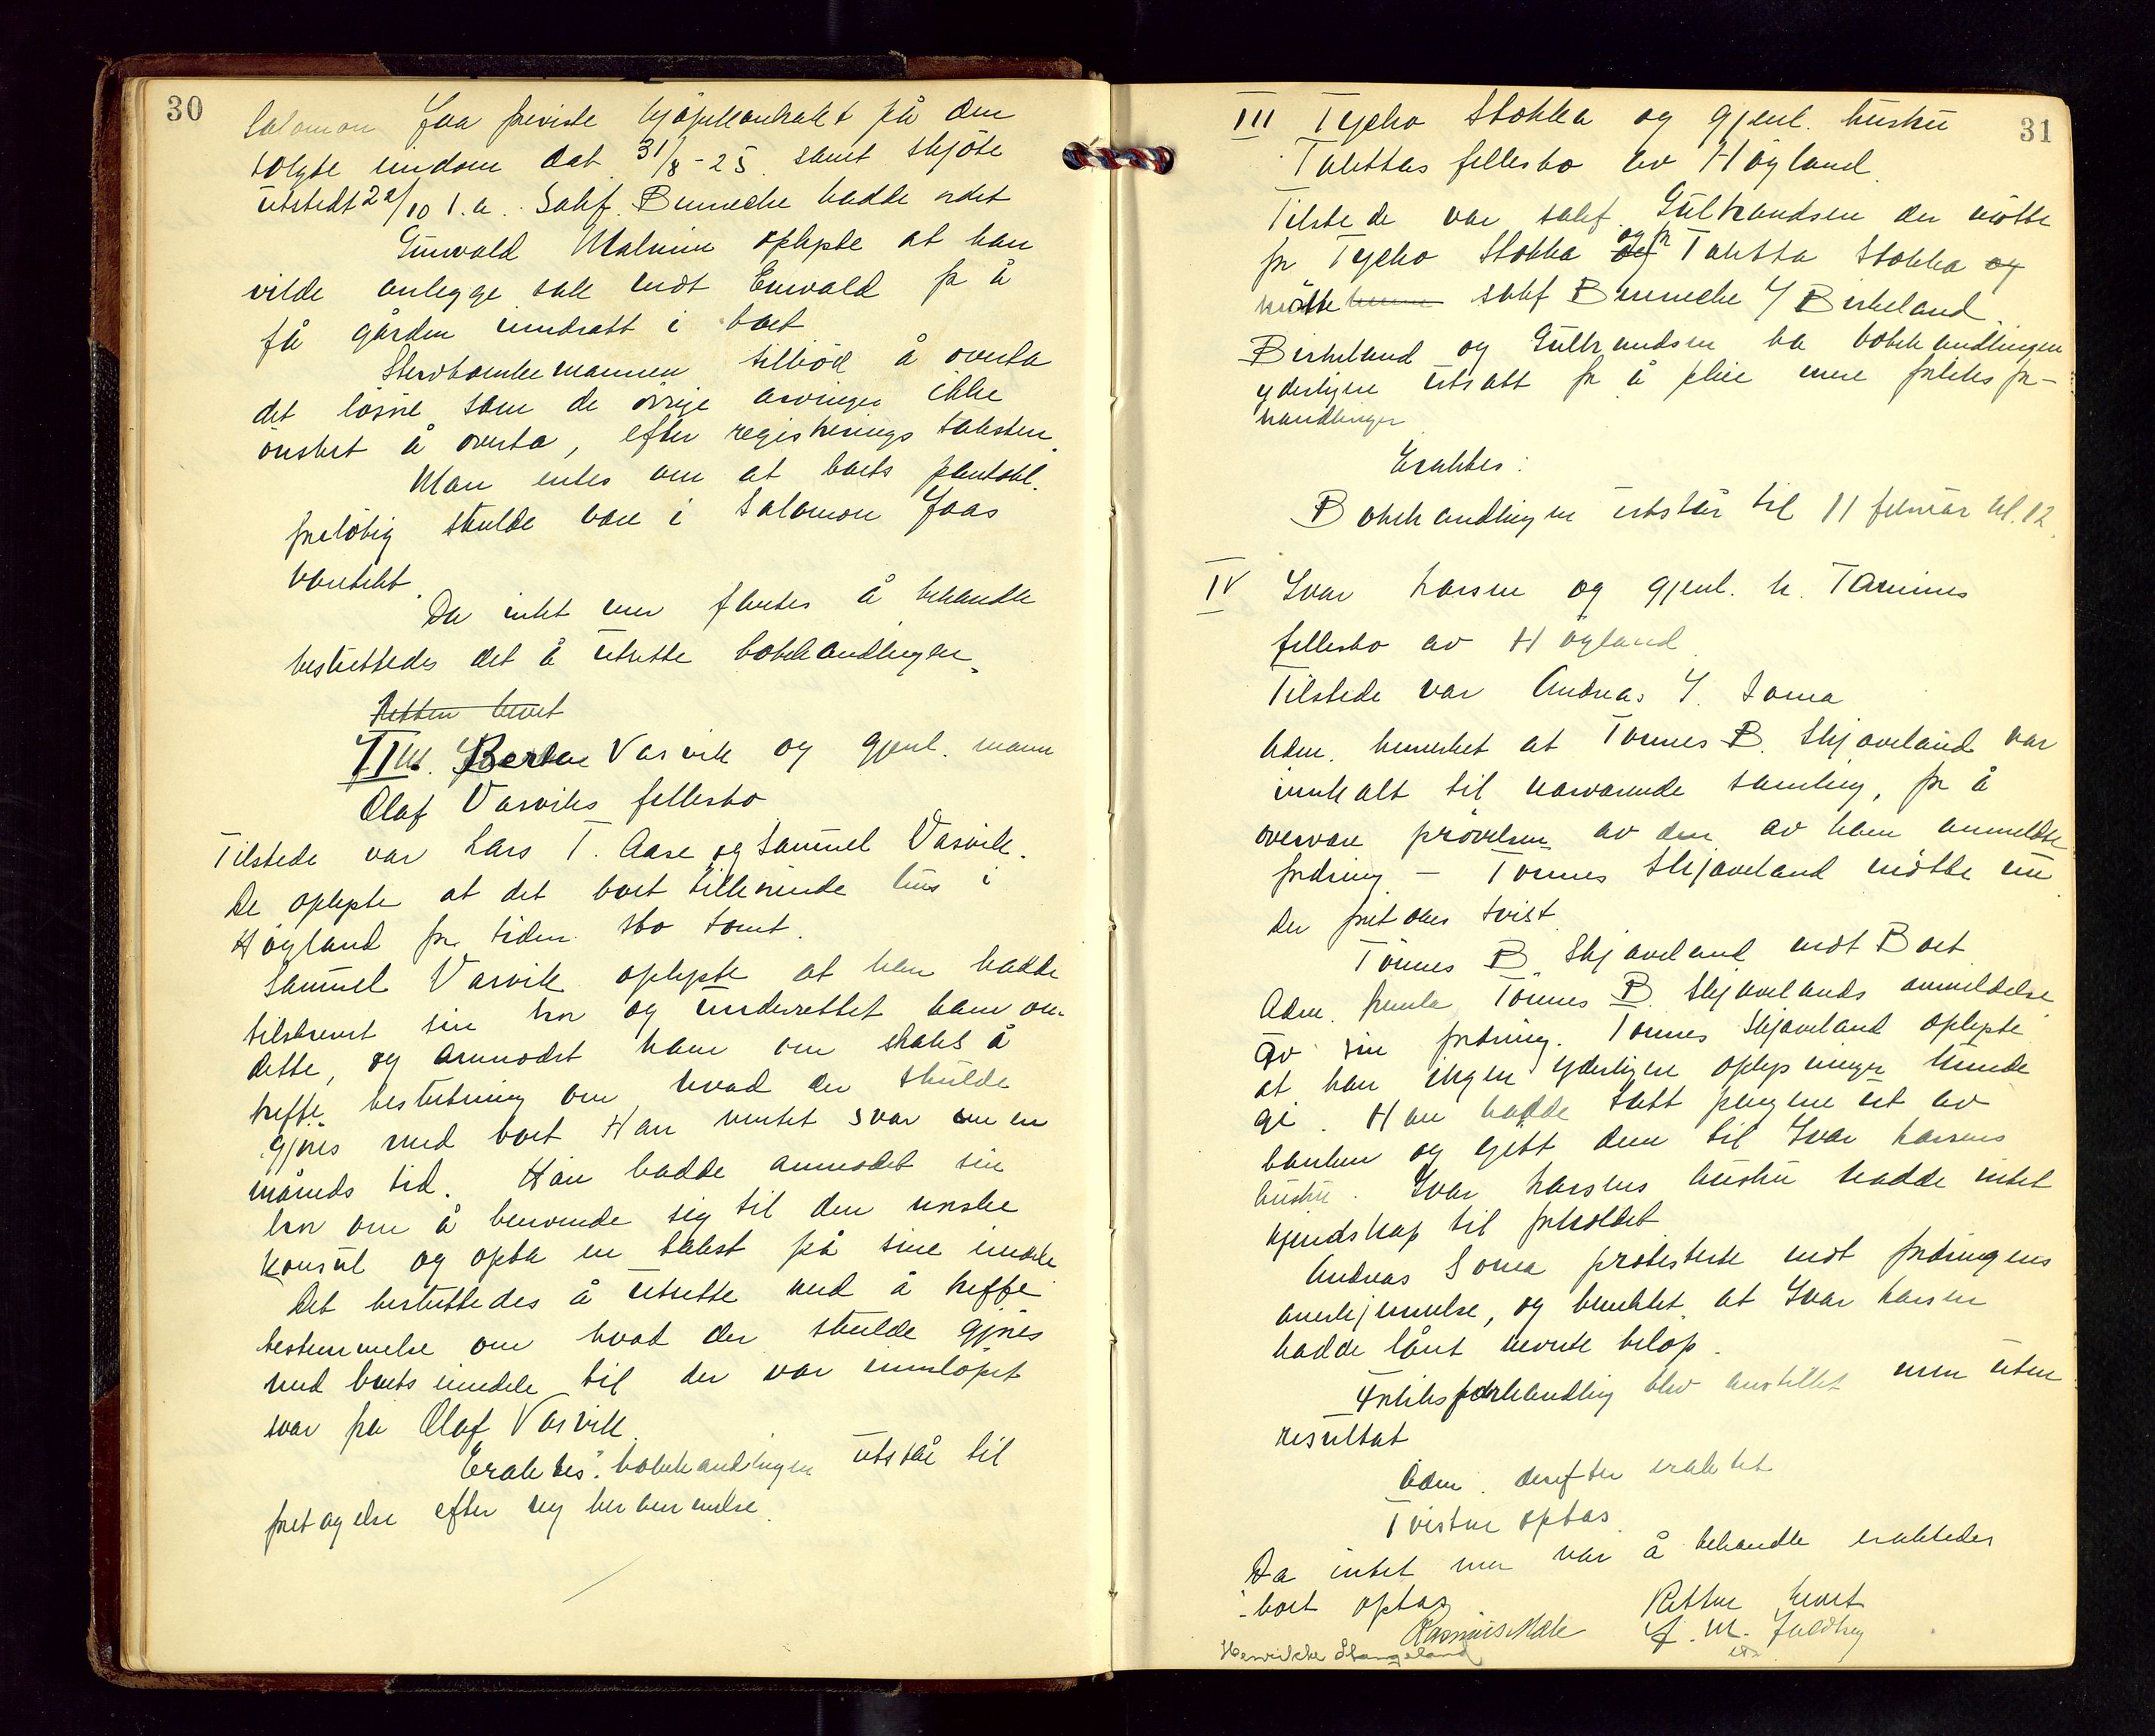 30
Salomon Joa freviste kjøpekontrakt på den
solgte eiendom dat. 31/8-25 samt skjöte
utstedt 22/10 s.a. Sakf. Benneche hadde ordet
Gunvald Malmin oplyste at han
vilde anlegge sak mot Enevald for å
få gården inndratt i boet
Stervboenkemannen tilböd å overta
det lösöre som de övrige arvinger ikke
önsket å overta, efter registrerings taksten.
Man enles om at boets pantobl.
foreløbig skulde være i Salomon Joas
varetekt.
Da intet mer fantes å behandle
besluttedes det å utsette bobehandlingen.
Retten hevet
II Berta Varvik og gjenl. mann
Olaf Varviks fellesbo
Tilstede var Lars T. Aase og Samuel Varvik.
De oplyste at det boet tilhörende hus i
Höyland for tiden sto tomt.
Samuel Varvik oplyste at han hadde
tilskrevet sin bror og underrettet ham om
dette, og anmodet ham om straks å
treffe beslutning om hvad der skulde
gjöres med boet Han ventet svar om en
måneds tid. Han hadde anmodet sin
bror om å henvende sig til den norske
konsul og opta en takst på sine
Det besluttedes å utsette med å treffe
bestemmelse om hvad der skulde gjöres
med boets eiendele til der var innlöpet
svar på Olaf Varvik
Eraktes: bobehandlingen utstår til
foretagelse efter ny berammelse.
31
III Tycho Stokka og gjenl. hustru
Talettas fellesbo av Höyland
Tilstede var sakf. Gulbrandsen der mötte
for Tycho Stokka og for Taletta Stokka og
mötte sakf Benneche f/ Birkeland.
Birkeland og Gulbrandsen ba bobehandlingen
yderligere utsatt for å pleie mere forliksfor-
handlinger
Eraktes:
Bobehandlingen utstår til 11 februar kl. 12.
IV Ivar Larsen og gjenl. h. Tamines
fellesbo av Höyland.
Tilstede var Andreas I. Soma
Adm. bemerket at Tönnes B. Skjæveland var
innkalt til nærværende samling, for å
overvære prövelsen av den av ham anmeldte
fordring – Tönnes Skjæveland mötte
Der foretokes tvist
Tönnes B. Skjæveland mot Boet
Adm. fremla Tönnes B. Skjævelands anmeldelse
av sin fordring. Tönnes Skjæveland oplyste
at han ingen yderligere oplysninger kunde
gi. Han hadde tatt pengene ut av
banken og gitt dem til Ivar Larsens
hustru. Ivar Larsens hustru hadde intet
kjendskap til forholdet
Andreas Soma protesterte mot fordringens
anerkjennelse, og benektet at Ivar Larsen
hadde lånt nevnte belöp.
Forliksforhandling blev anstillet men uten
resultat
Adm. derefter eraktet
Tvisten optas.
Da intet mer var å behandle eraktedes
boet optas
Retten hevet
Rasmus Male
Henrikke Stangeland